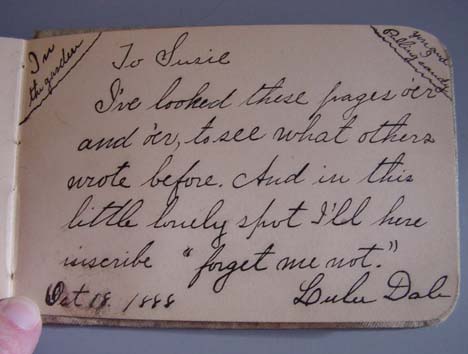 In
the garden
you and
Pulling candy
To Susie
I've looked these pages oer
and o'er, to see what others
wrote before. And in this
little lonely spot I'll here
inscribe "forget me not."
Oct 18. 1888
Lulu Dale